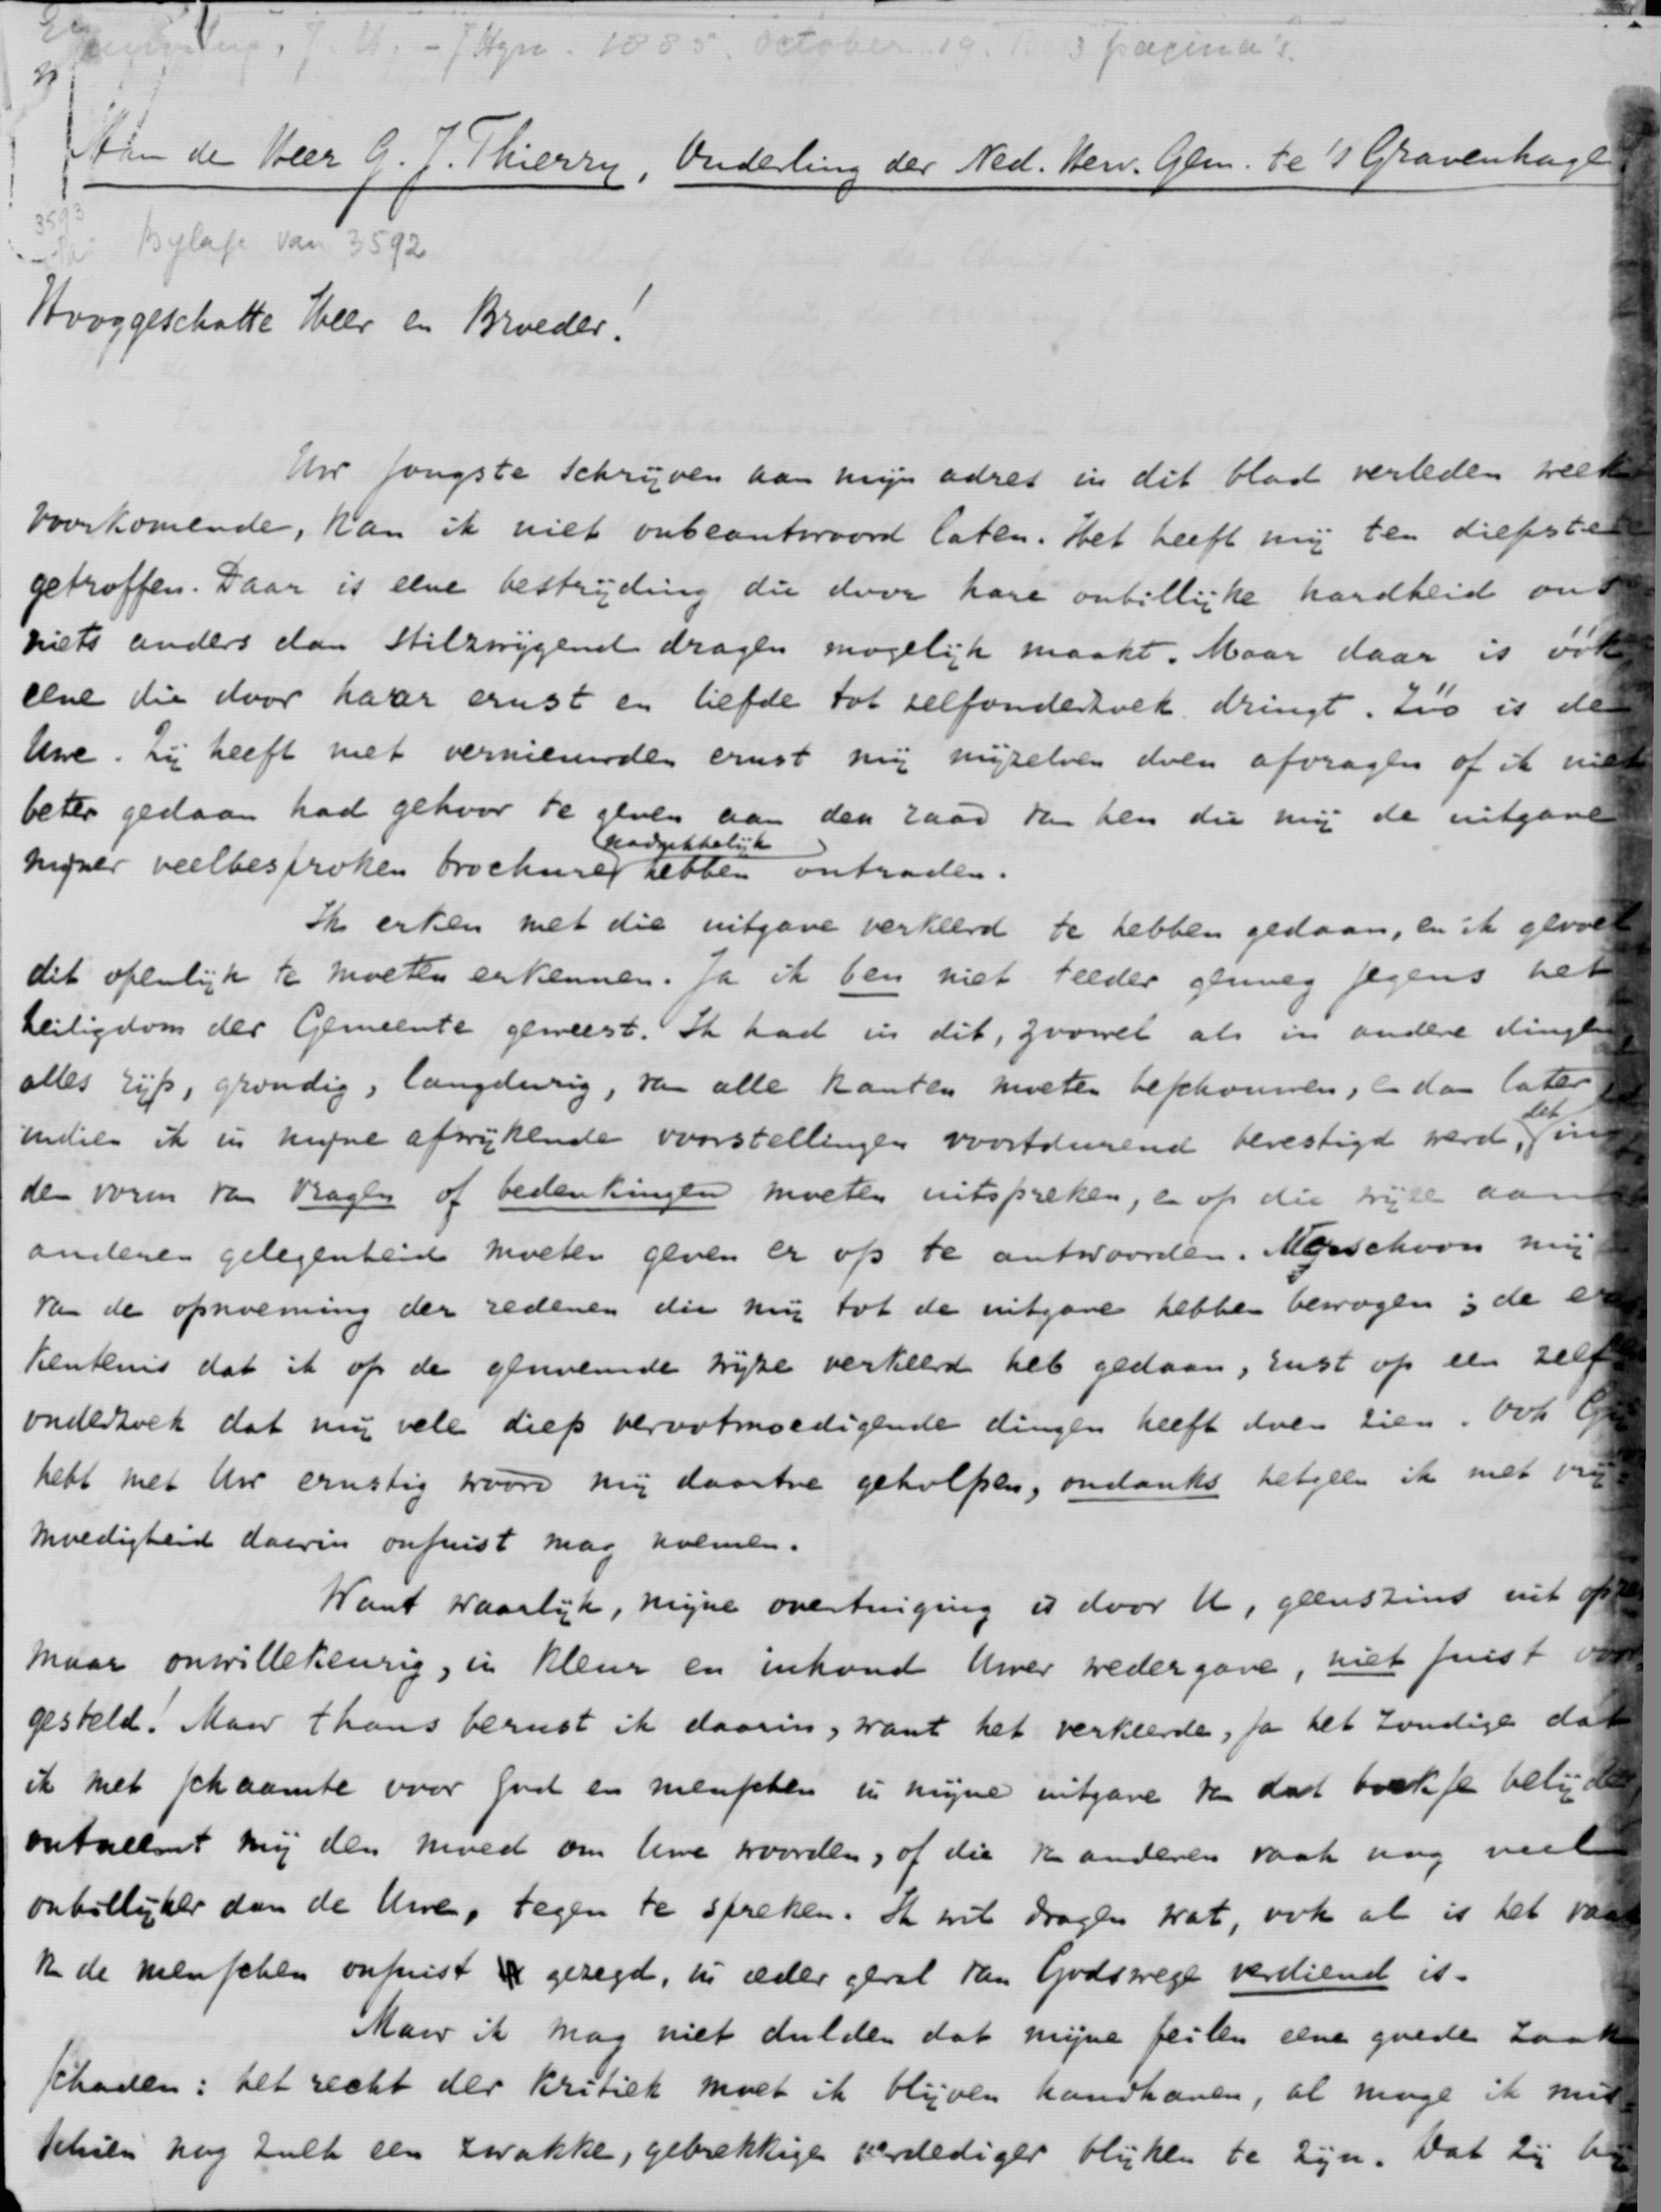 J.H. - J.Hzn. 1885. October 19. 3 pagina's.
Aan de Heer G. J. Thierry, Ouderling der Ned. Herv. Gem. te 's Gravenhage.
3593
Bylage van 3592
Hooggeschatte Heer en Broeder!
Uw jongste schrijven aan mijn adres in dit blad verleden week
voorkomende, kan ik niet onbeantwoord laten. Het heeft mij ten diepste
getroffen. Daar is eene bestrijding die door hare onbillijke hardheid ons
niets anders dan stilzwijgend dragen mogelijk maakt. Maar daar is óók
eene die door haar ernst en liefde tot zelfonderzoek dringt. Zóó is de
Uwe. Zij heeft met vernieuwden ernst mij mijzelven doen afvragen of ik niet
beter gedaan had gehoor te geven aan den raad van hen die mij de uitgave
mijner veelbesproken brochure nadrukkelijk hebben ontraden.
Ik erken met die uitgave verkeerd te hebben gedaan, en ik gevoel
dit openlijk te moeten erkennen. Ja ik ben niet teeder genoeg jegens het
heiligdom der Gemeente geweest. Ik had in dit, zoowel als in andere dingen
alles rijp, grondig, langdurig, van alle kanten moeten beschouwen, en dan later
indien ik in mijne afwijkende voorstellingen voortdurend bevestigd werd, dit in
den vorm van vragen of bedenkingen moeten uitspreken, en op die wijze aan
anderen gelegenheid moeten geven er op te antwoorden. Verschoon mij
van de opnoeming der redenen die mij tot de uitgave hebben bewogen; de er-
kentenis dat ik op de genoemde wijze verkeerd heb gedaan, rust op een zelf-
onderzoek dat mij vele diep verootmoedigende dingen heeft doen zien. Ook Gij
hebt met Uw ernstig woord mij daartoe geholpen, ondanks hetgeen ik met vrij-
moedigheid daarin onjuist mag noemen.
Want waarlijk, mijne overtuiging is door U, geenszins uit opzet
maar onwillekeurig, in kleur en inhoud Uwer wedergave, niet juist voor-
gesteld! Maar thans berust ik daarin, want het verkeerde, ja het zondige dat
ik met schaamte voor God en menschen in mijne uitgave van dat boekje belijde,
ontneemt mij den moed om Uwe woorden, of die van anderen vaak nog veel
onbillijker dan de Uwe, tegen te spreken. Ik wil dragen wat, ook al is het vaak
van de menschen onjuist gezegd, in ieder geval van Godswege verdiend is.
Maar ik mag niet dulden dat mijne feilen eene goede zaak
schaden: het recht der kritiek moet ik blijven handhaven, al moge ik mis-
schien nog zulk een zwakke, gebrekkige verdediger blijken te zijn. Dat zij bij